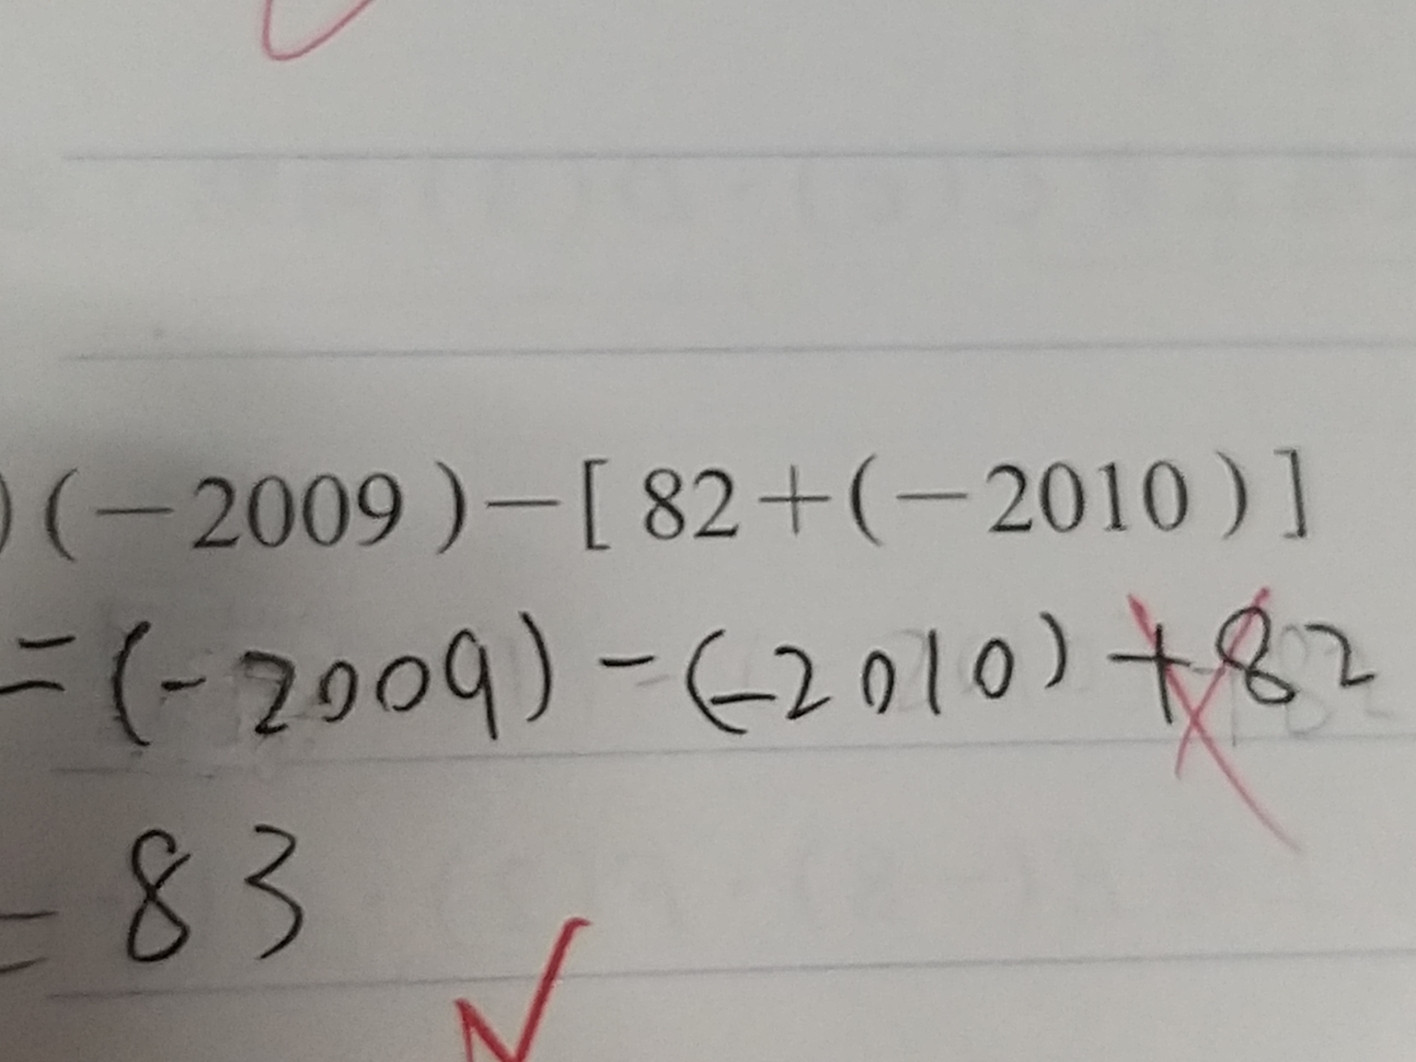 )(-2009)-[82+(-2010)]
=(-2009)-(-2010)+82
=83